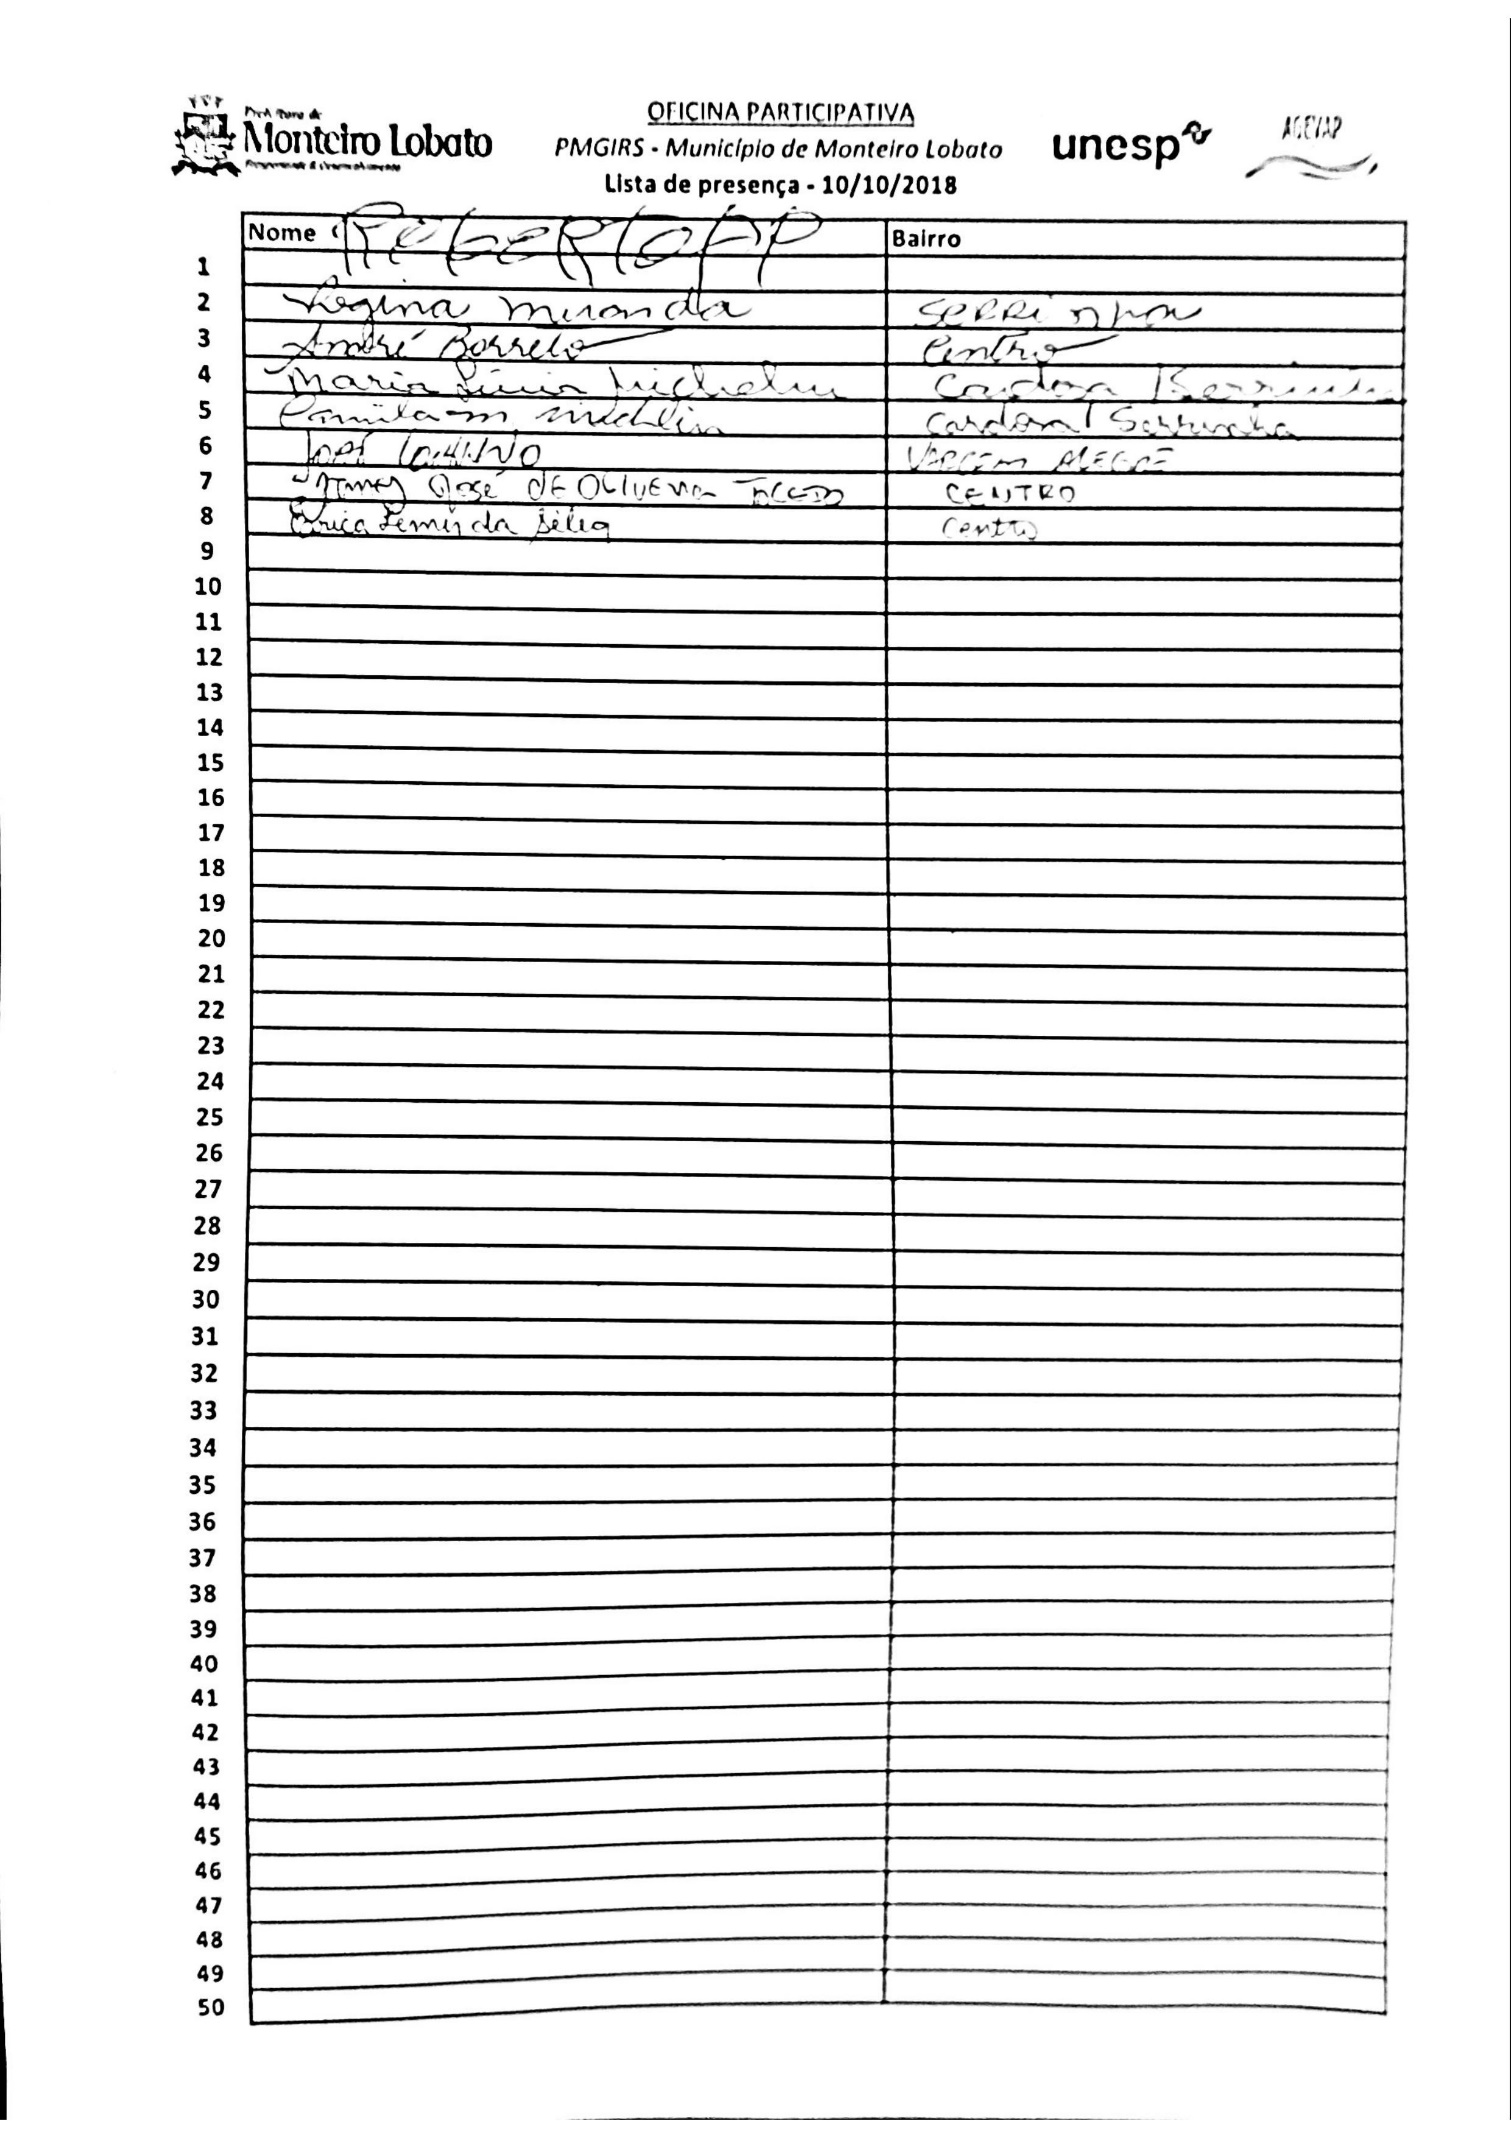 Prefeitura de
Monteiro Lobato
OFICINA PARTICIPATIVA
PMGIRS - Município de Monteiro Lobato
Lista de presença - 10/10/2018
unesp
AGEVAP
Nome
Bairro
1
2 Regina Miranda SERRinha
3 André Barreto Centro
4 Maria Lúcia Cardoso
5 Camila m Cardoso / Serrinha
6 José VARGEM ALEGRE
7 José DE OLIVEIRA TOLEDO CENTRO
8 Érica Centro
9
10
11
12
13
14
15
16
17
18
19
20
21
22
23
24
25
26
27
28
29
30
31
32
33
34
35
36
37
38
39
40
41
42
43
44
45
46
47
48
49
50